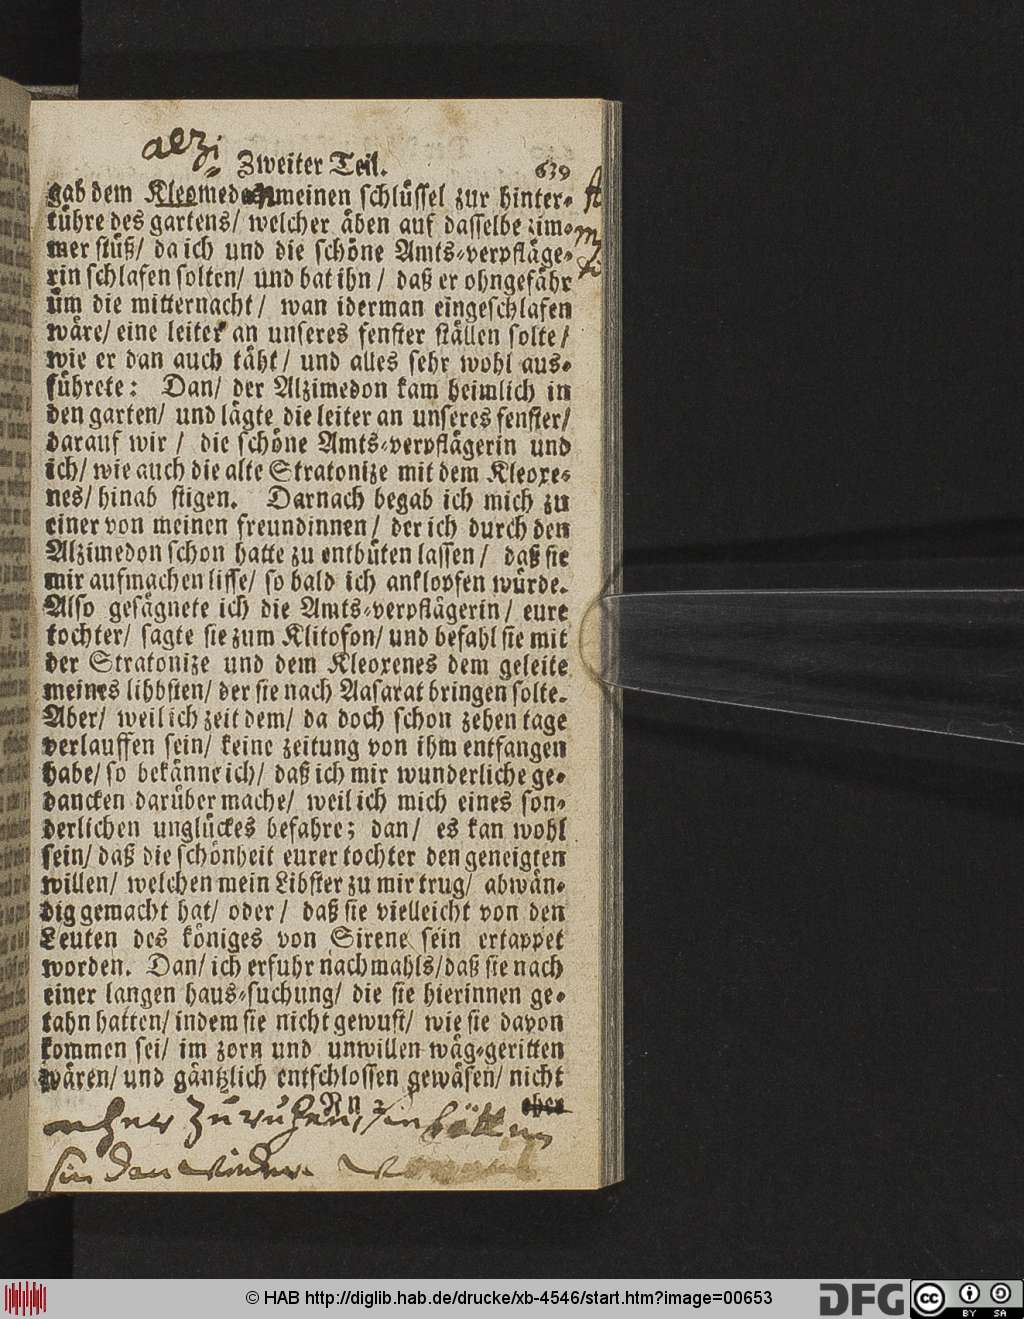 alzi
Zweiter Teil. 639
gab dem Kleomedon meinen schlüssel zur hinter-
tühre des gartens/ welcher äben auf dasselbe zim-
mer stüß/ da ich und die schöne Amts-verpfläge-
rin schlafen solten/ und bat ihn/ daß er ohngefähr
üm die mitternacht/ wan iderman eingeschlafen
wäre/ eine leiter an unseres fenster ställen solte/
wie er dan auch täht/ und alles sehr wohl aus-
führete: Dan/ der Alzimedon kam heimlich in
den garten/ und lägte die leiter an unseres fenster/
darauf wir/ die schöne Amts-verpflägerin und
ich/ wie auch die alte Stratonize mit dem Kleoxe-
nes/ hinab stigen. Darnach begab ich mich zu
einer von meinen freundinnen/ der ich durch den
Alzimedon schon hatte zu entbüten lassen/ daß sie
mir aufmachen lisse/ so bald ich anklopfen würde.
Also gesägnete ich die Amts-verpflägerin/ eure
tochter/ sagte sie zum Klitofon/ und befahl sie mit
der Stratonize und dem Kleoxenes dem geleite
meines libbsten/ der sie nach Aasarat bringen solte.
Aber/ weil ich zeit dem/ da doch schon zehen tage
verlauffen sein/ keine zeitung von ihm entfangen
habe/ so bekänne ich/ daß ich mir wunderliche ge-
dancken darüber mache/ weil ich mich eines son-
derlichen unglückes befahre; dan/ es kan wohl
sein/ daß die schönheit eurer tochter den geneigten
willen/ welchen mein Libster zu mir trug/ abwän-
dig gemacht hat/ oder/ daß sie vielleicht von den
Leuten des königes von Sirene sein ertappet
worden. Dan/ ich erfuhr nachmahls/ daß sie nach
einer langen haus-suchung/ die sie hierinnen ge-
tahn hatten/ indem sie nicht gewust/ wie sie davon
kommen sei/ im zorn und unwillen wäg-geritten
wären/ und gäntzlich entschlossen gewäsen/ nicht
Nn 2 eher
eher zu ruhen, sie hätten
sie den wieder
© HAB http://diglib.hab.de/drucke/xb-4546/start.htm?image=00653
DFG
cc BY SA